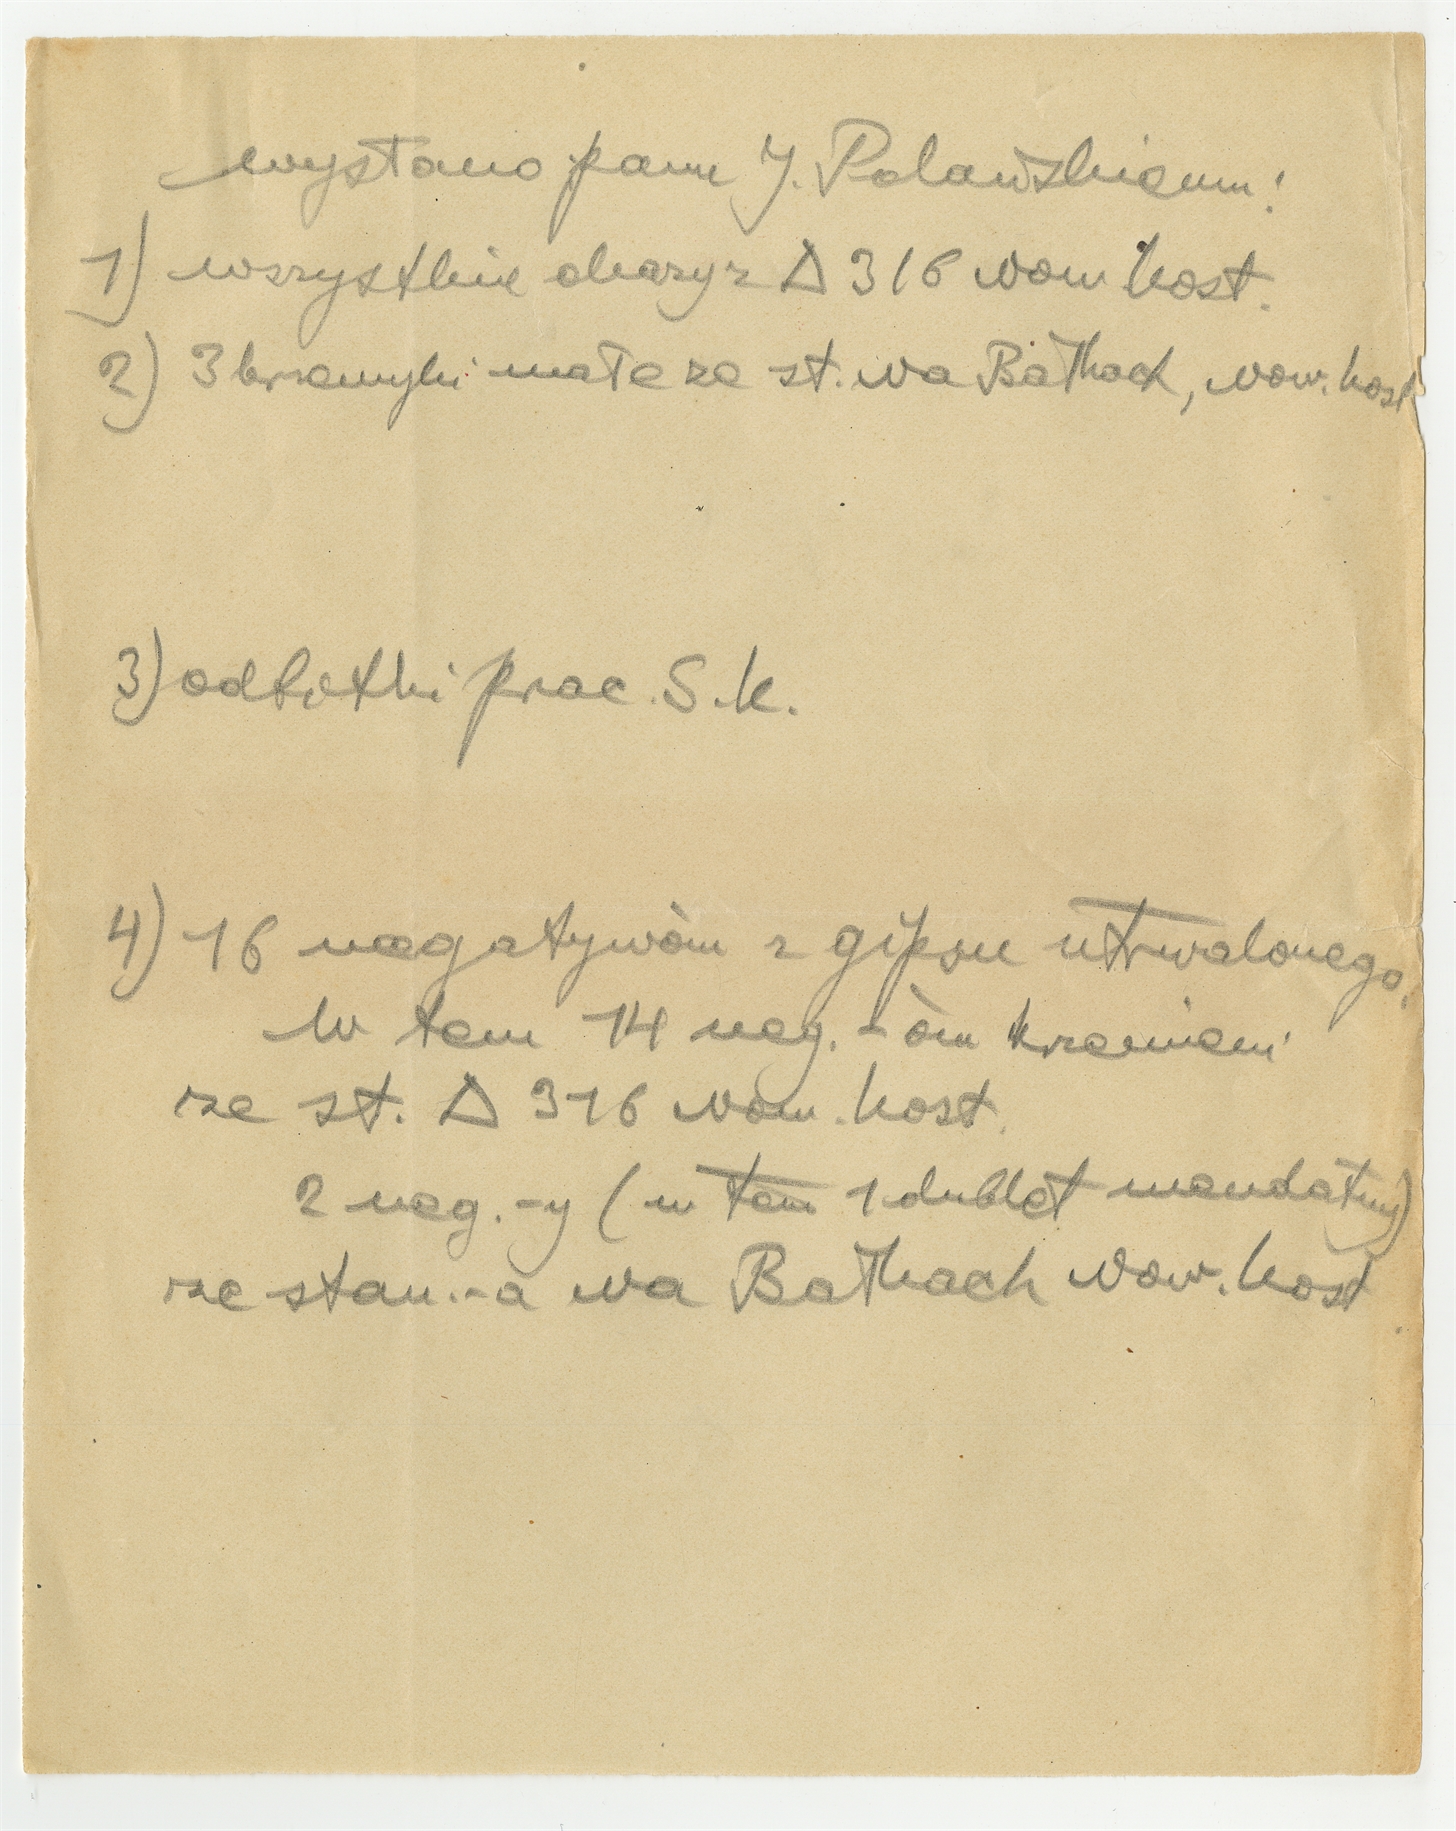 wysłano panu J. Polawskiemu:
1) wszystkie okazy z Δ 316 now. kost.
2) 3 krzemyki małe ze st. na Bałkach, now. kost
3) odbitki prac. S.K.
4) 16 negatywów z gipsu utrwalonego.
w tem 14 neg.-ów krzemieni
ze st. Δ 316 now. kost.
2 neg.-y (w tem 1 dublet nieudatny)
ze stan.-a na Bałkach now. kost